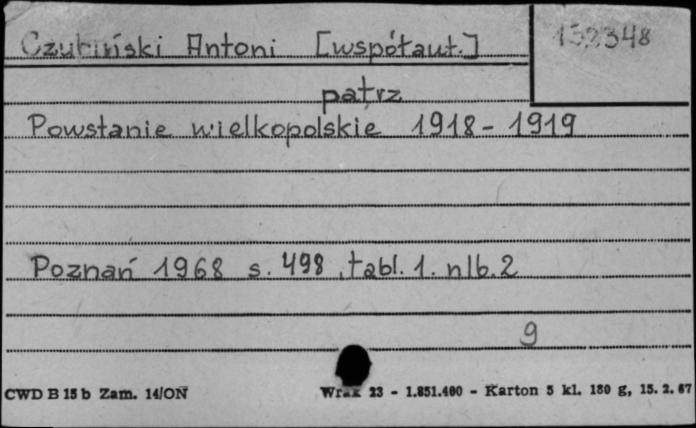 Czubiński Antoni [współaut.]
152348
patrz
Powstanie wielkopolskie 1918-1919
Poznań 1968 s. 498, tabl. 1. nlb. 2
9
CWD B 15 b Zam. 14/ON
23 - 1.851.400 - Karton 5 kl. 180 g, 15. 2. 67